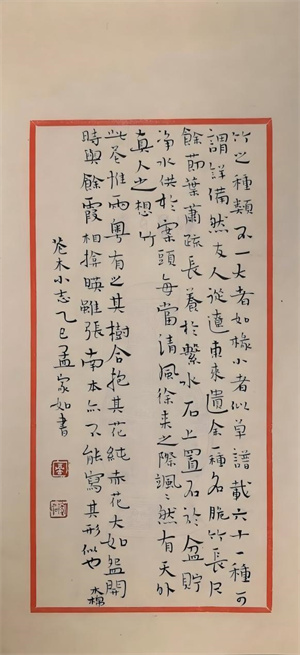 竹之種類不一大者如椽小者似草譜載六十一種可
謂詳備然友人從遼東來遺余一種名脆竹長尺
餘節葉蕭疏長養於繫水石上置石於盆貯
净水供於案頭每當清風徐来之際颯颯然有天外
真人之想 竹
此花惟兩粤有之其樹合抱其花純赤花大如盌開
時與餘霞相掩暎雖張南本亦不能寫其形似也 木棉
花木小志乙巳孟家如書